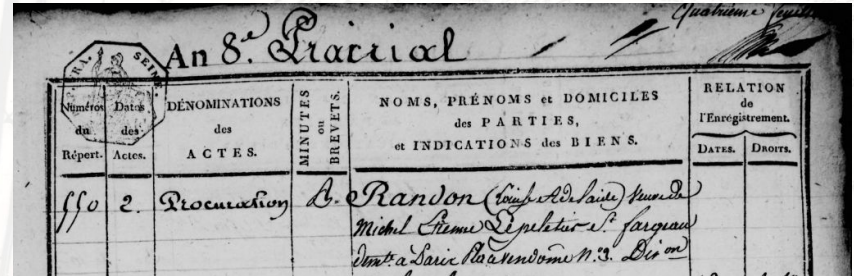 Quatrieme
An 8.e Prairial
SEINE.
Numéros du Répert.
Dates des Actes.
DÉNOMINATIONS des ACTES.
MINUTES ou BREVETS.
NOMS, PRÉNOMS et DOMICILES
des PARTIES,
et INDICATIONS des BIENS.
RELATION
de
l'Enregistrement.
DATES. DROITS.
550 2. Procuration B. Randon (Louise Adelaide) veuve de
Michel Etienne Lepeletier St. fargeau
demte. a Paris Place Vendôme No. 3. Dison